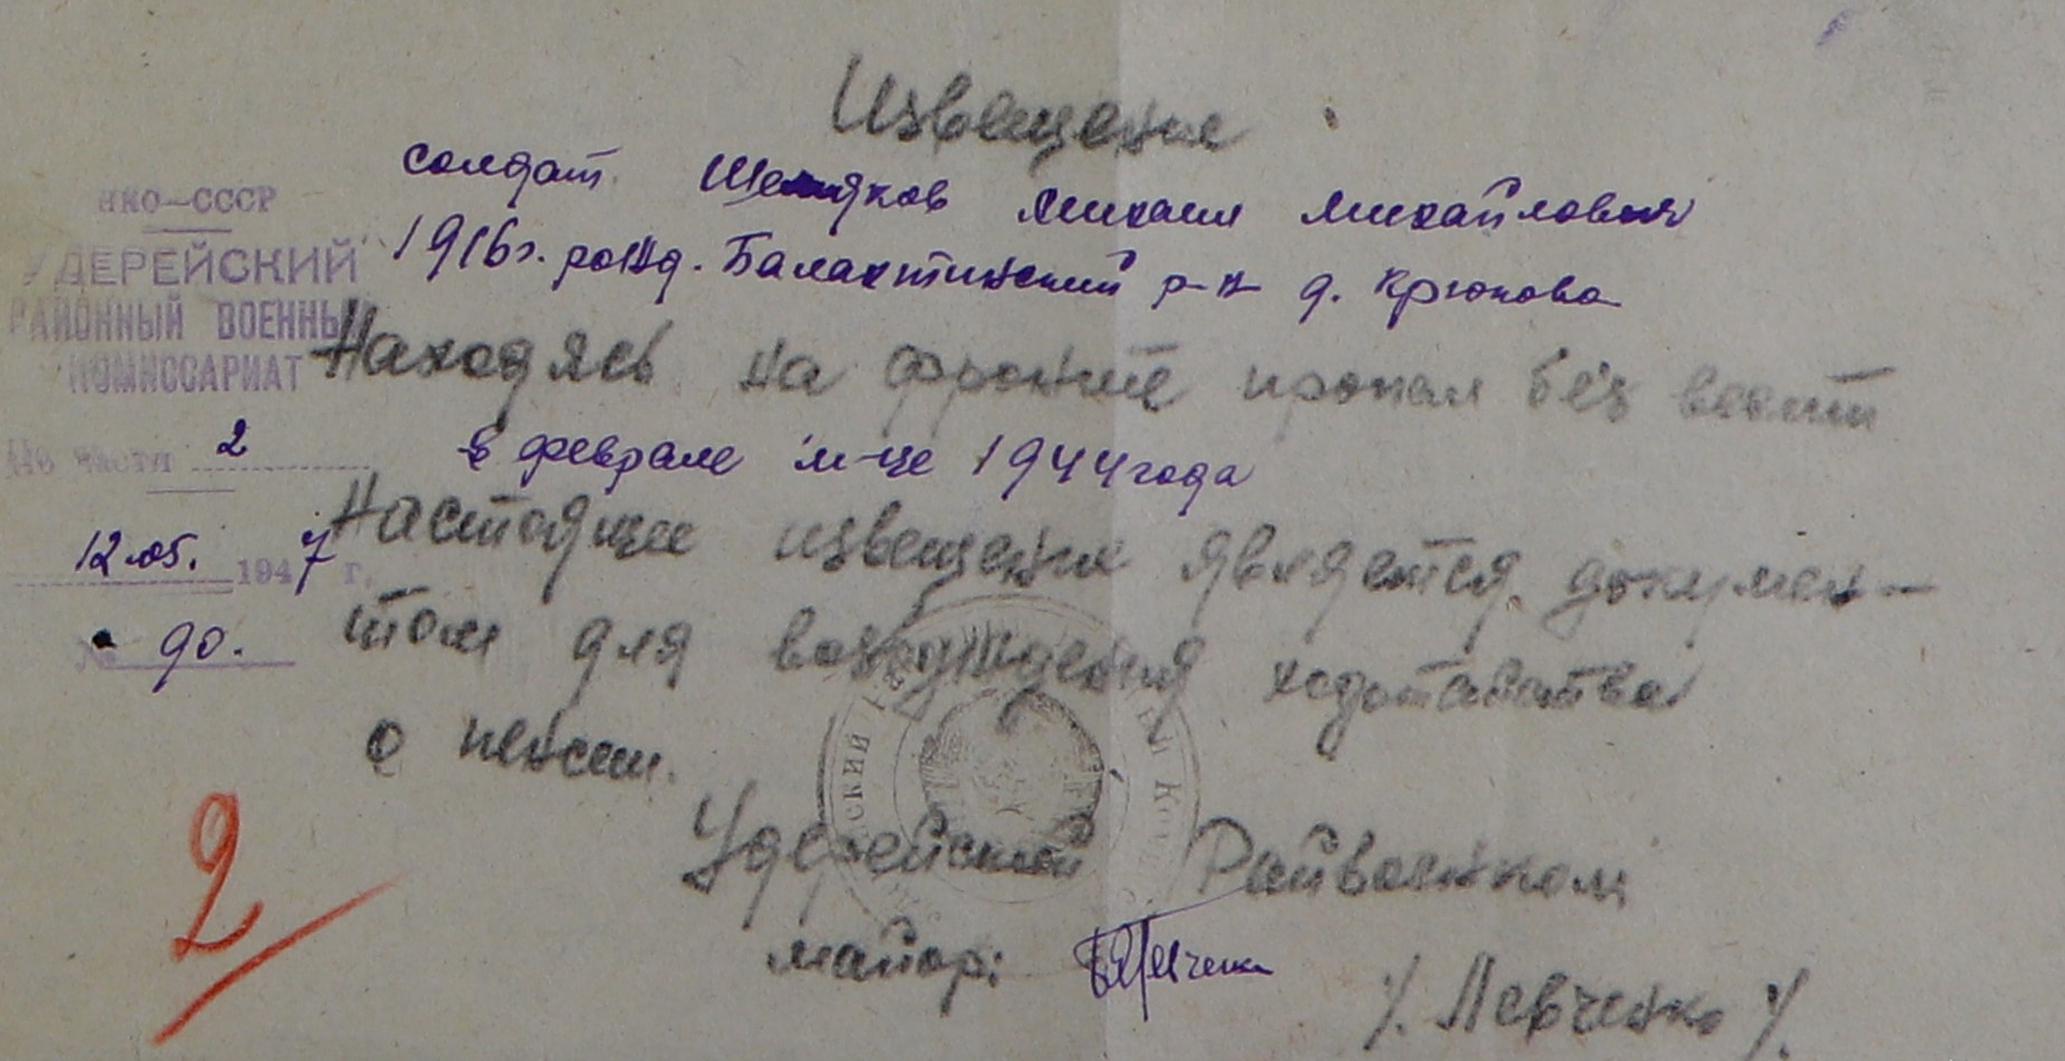 Извещение
солдат Михаил Михайлович
1916г. рожд. Балахтинский р-н д. Крюкова
Находясь на фронте пропал без вести
в феврале м-це 1944 года
Настоящее извещение является докумен-
том для возбуждения ходатайства
о пенсии.
Удерейский Райвоенком
майор:
/. Левченко /.
НКО—СССР
УДЕРЕЙСКИЙ
РАЙОННЫЙ ВОЕННЫЙ
КОМИССАРИАТ
По части 2
12.05. 1947 г.
№ 90.
2